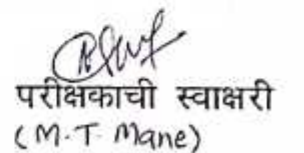 परीक्षकाची स्वाक्षरी
(M.T. Mane)